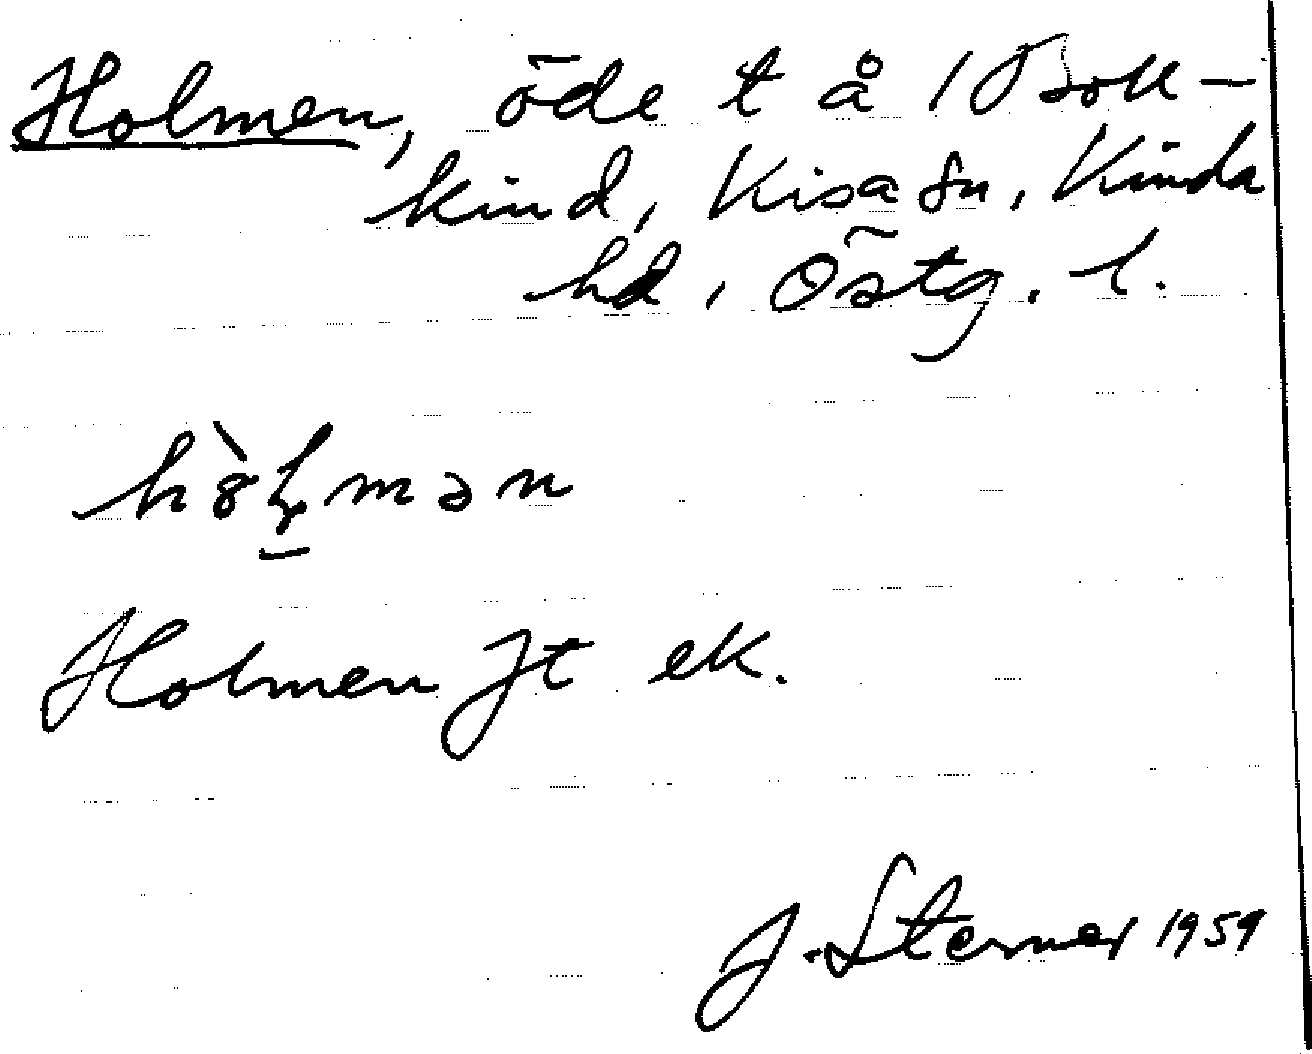 Holmen, öde t å 1 Boll-
kind, Kisa sn, Kinda
hd, Östg. l.
Holmen Jt ek.
J. Sterner 1959